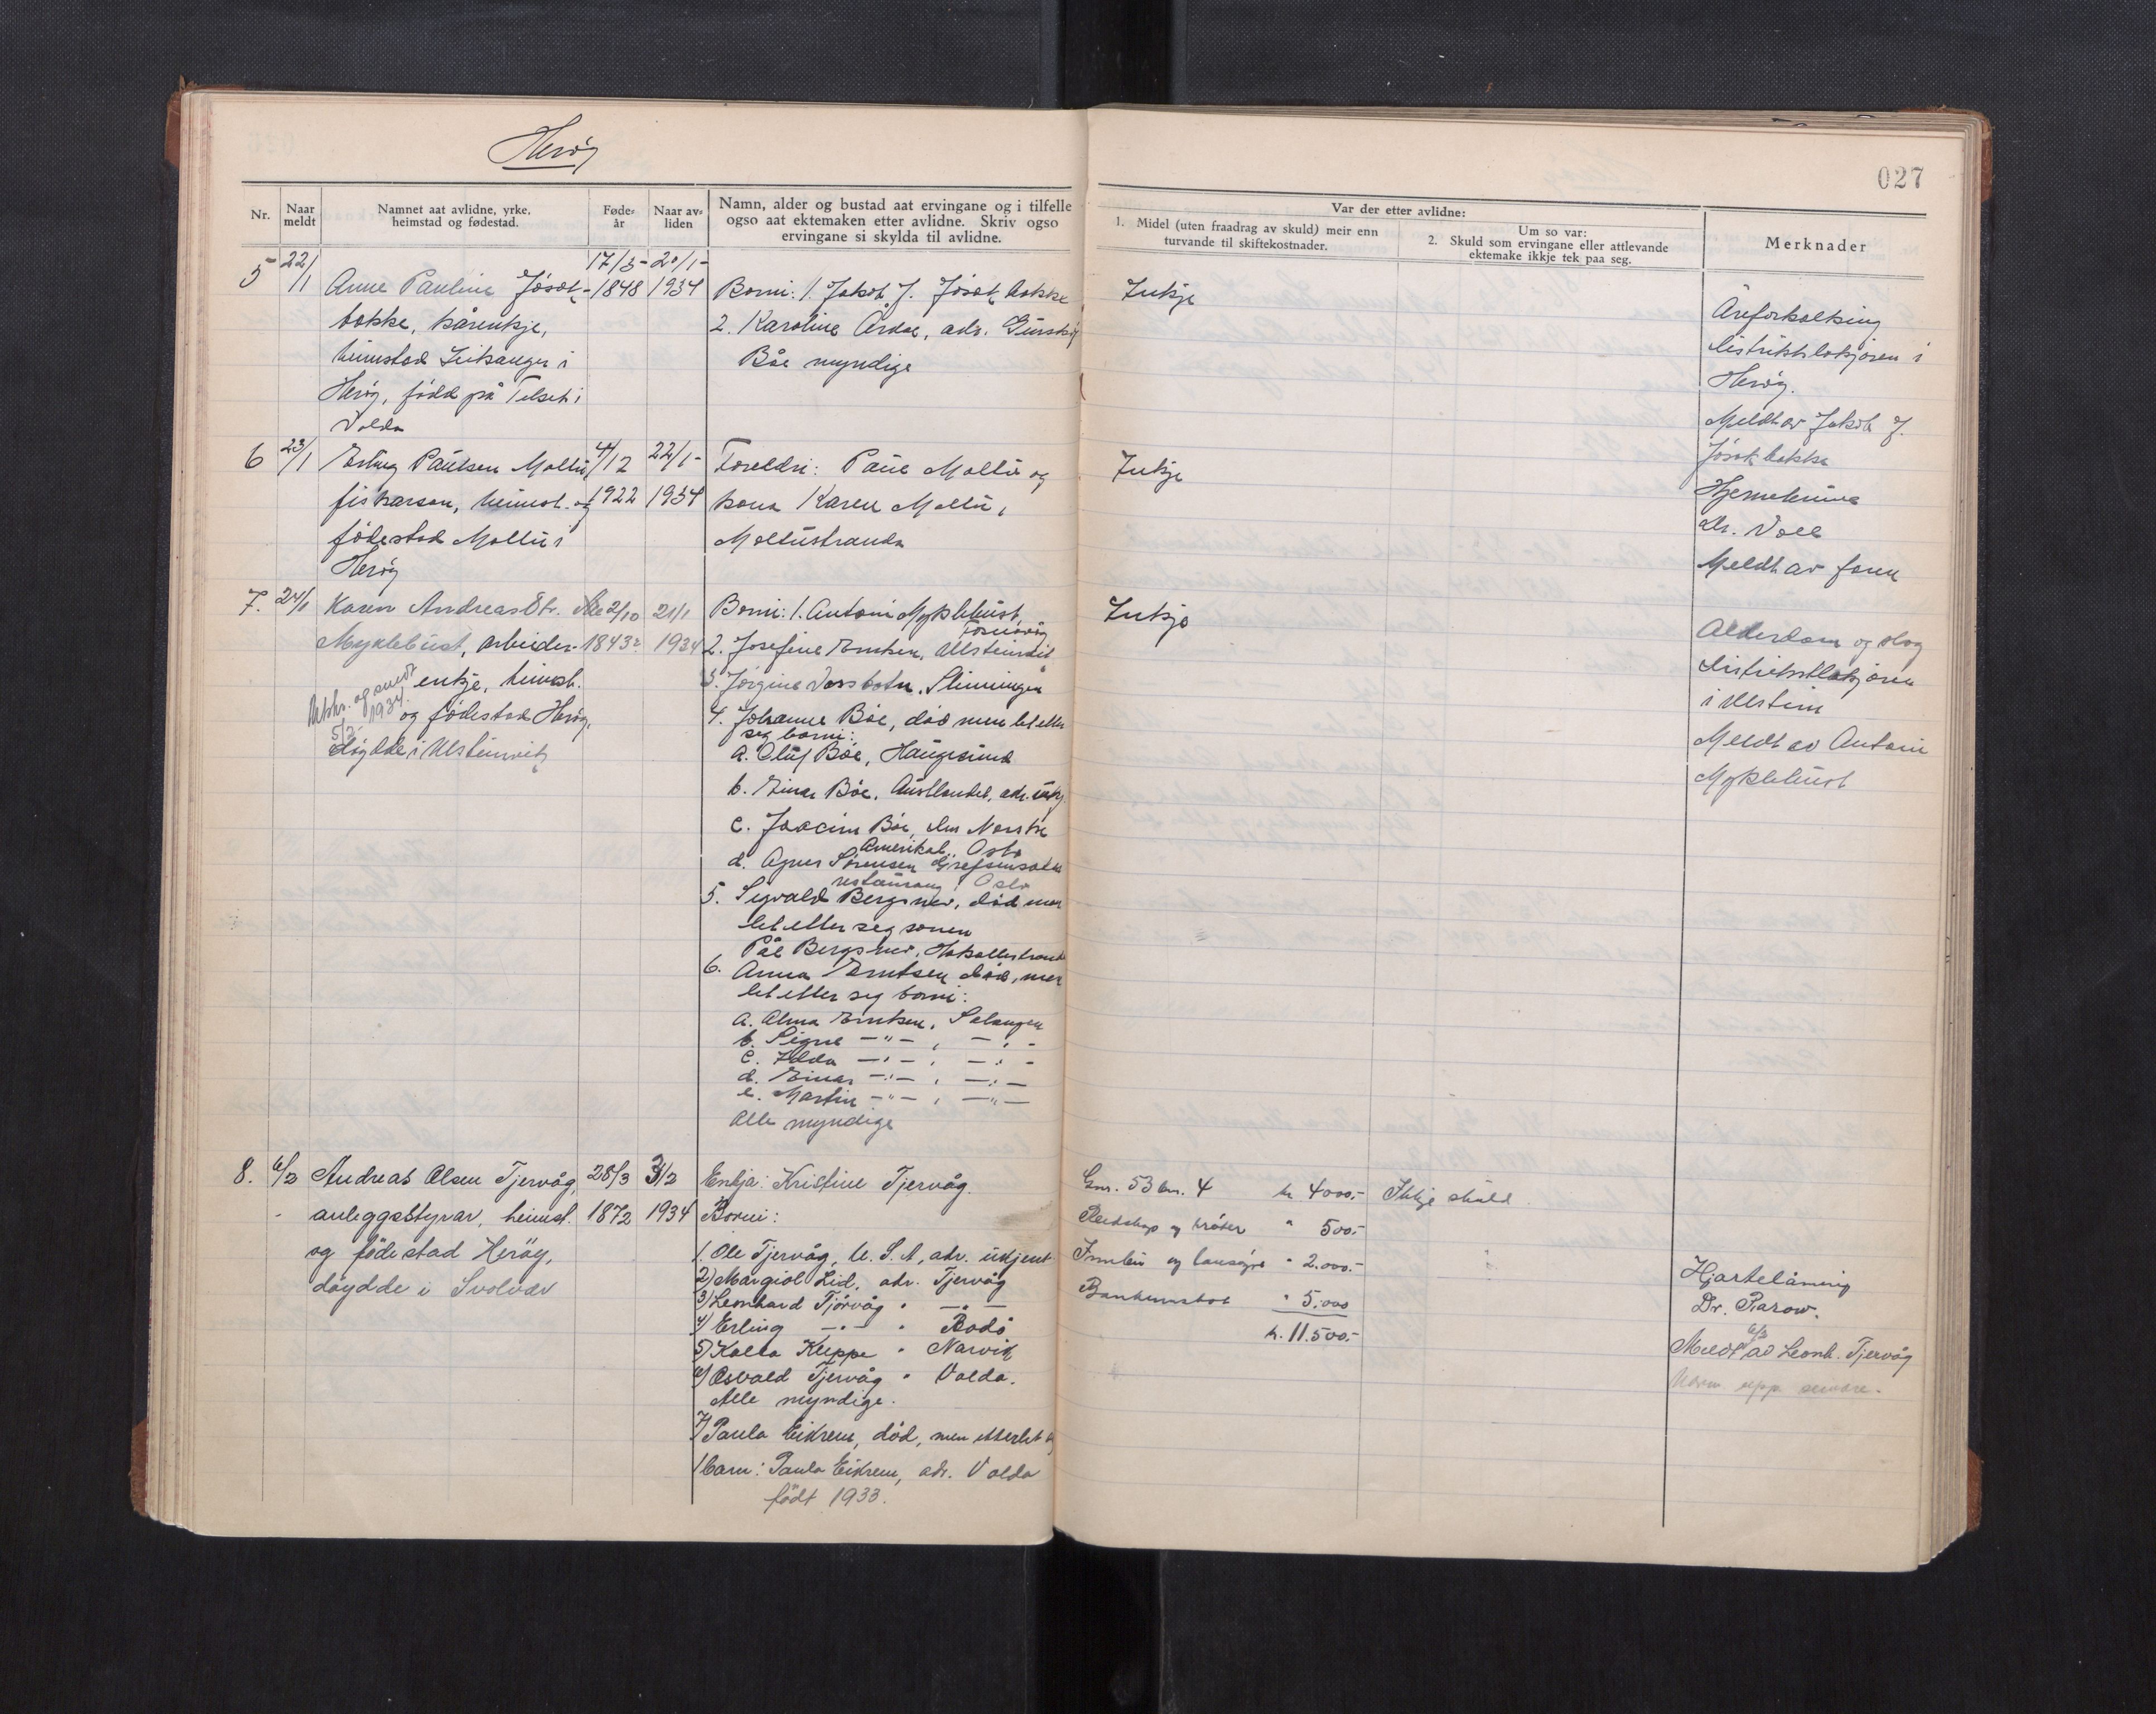 Herøy
027
Nr.
Naar meldt
Namnet aat avlidne, yrke, heimstad og fødestad.
Føde-år
Naar av-liden
Namn, alder og bustad aat ervingane og i tilfelle
ogso aat ektemaken etter avlidne. Skriv ogso
ervingane si skylda til avlidne.
Var der etter avlidne:
1. Midel (uten fraadrag av skuld) meir enn
turvande til skiftekostnader.
Um so var:
2. Skuld som ervingane eller attlevande
ektemake ikkje tek paa seg.
Merknader
5 22/1 Anne Pauline Jøsok-
bakke, kårenkje,
heimstad Leikanger i
Herøy, född på
Volda
17/5-
1848
20/1-
1934
Borni: 1. Jakob J. Jøsokbakke
2. Karoline Årdal, adr. Gurskøy
Båe myndige
Inkje
Åreforkalking
distriktslækjaren i
Herøy.
Meldt av Jakob J.
Jøsokbakke
6 23/1 Erling Paulsen Moltu,
fiskarson, heimst. og
fødestad Moltu i
Herøy
4/12
1922
22/1-
1934
Foreldri: Paul Moltu og
kona Karen Moltu,
Moltustranda
Inkje
Dr. Voll
Meldt av faren
7. 24/1 Karen Andreasdtr.
Myklebust, arbeider-
enkje, heimst.
og fødestad Herøy,
döydde i Ulsteinvik
Utskr. og sendt
5/2 1934.
2/10
1843
21/1
1934
Borni: 1. Antoni Myklebust,
Fosnavåg
2. Josefine Erntsen, Ulsteinvik
3. Jørgine Varsbotn,
4. Johanne Böe, död men let etter
seg borni:
a. Oluf Böe, Haugesund
b. Einar Böe, Austlandet, adr. ukj.
c. Joacim Böe, den Norske
Amerikal. Oslo
d. Agnes Sørensen Grefsenåsen
restaurang, Oslo
5. Sigvald Bergsnev, död men
let etter seg sonen
Pål Bergsnev, Hakallestrand
6. Anna Erntsen död, men
let etter seg borni:
a. Alma Erntsen, Salangen
b. Signe —"— , —"—
c. Hilda —"— , —"—
d. Einar —"— , —"—
e. Martin —"— , —"—
Alle myndige
Inkje
Alderdom og slag
distriktslækjaren
i Ulstein
Meldt av Antoni
Myklebust
8. 6/2 Andreas Olsen Tjervåg,
anleggsstyrar, heimst.
og födestad Heröy,
döydde i Svolvær
28/3
1872
3/2
1934
Enkja: Kristine Tjervåg.
Borni:
1. Ole Tjervåg, U.S.A, adr. ukjent
2) Margiot Lid, adr. Tjervåg
3) Leonhard Tjörvåg " —"—
4) Erling —"— " Bodö
5) Kalla Kleppe " Narvik
6) Osvald Tjervåg " Volda.
Alle myndige.
7) Paula Eikrem, död, men etterlet seg
1 barn: Paula Eikrem, adr. Volda
födt 1933.
Gnr. 53 bnr. 4 kr. 4000.-
Reidskap og krøter " 500.-
Innbu og lausøyre " 2.000.-
Bankinnskot " 5.000
kr. 11.500.-
Ikkje skuld.
Hjartelåming
Dr. Rarow.
Meldt 6/2 av Leonh. Tjervåg